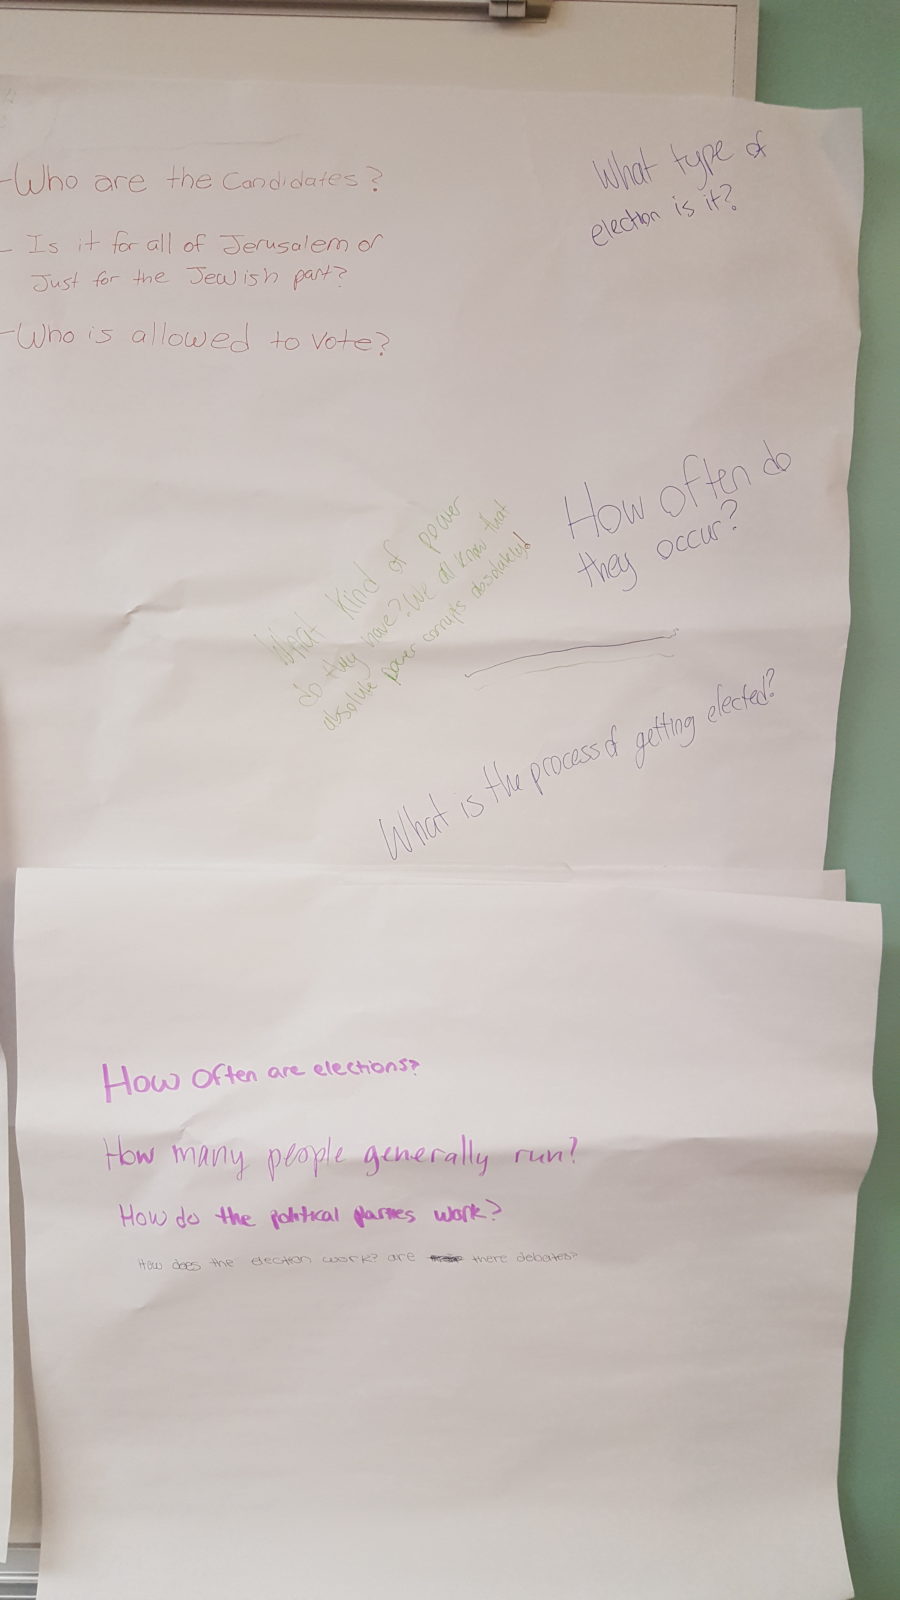 -Who are the Candidates?
- Is it for all of Jerusalem or
Just for the Jewish part?
-Who is allowed to vote?
What type of
election is it?
How often do
they occur?
What kind of power
do they have? We all know that
absolute power corrupts absolutely!
What is the process of getting elected?
How often are elections?
How many people generally run?
How do the political parties work?
How does the election work? are there debates?